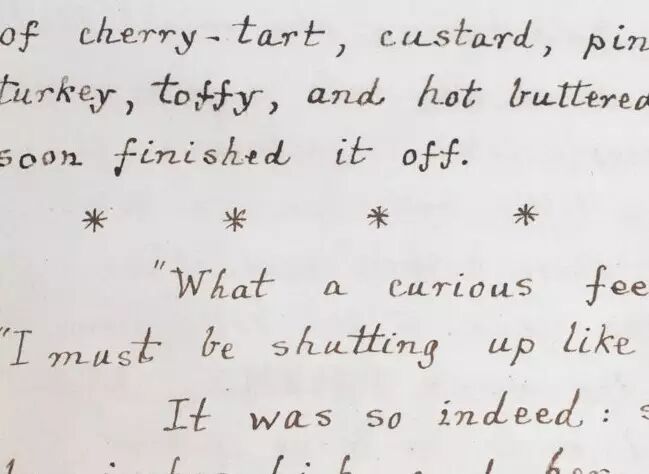 of cherry-tart, custard, pin
turkey, toffy, and hot buttered
soon finished it off.
* * * *
"What a curious fee
"I must be shutting up like
It was so indeed : s